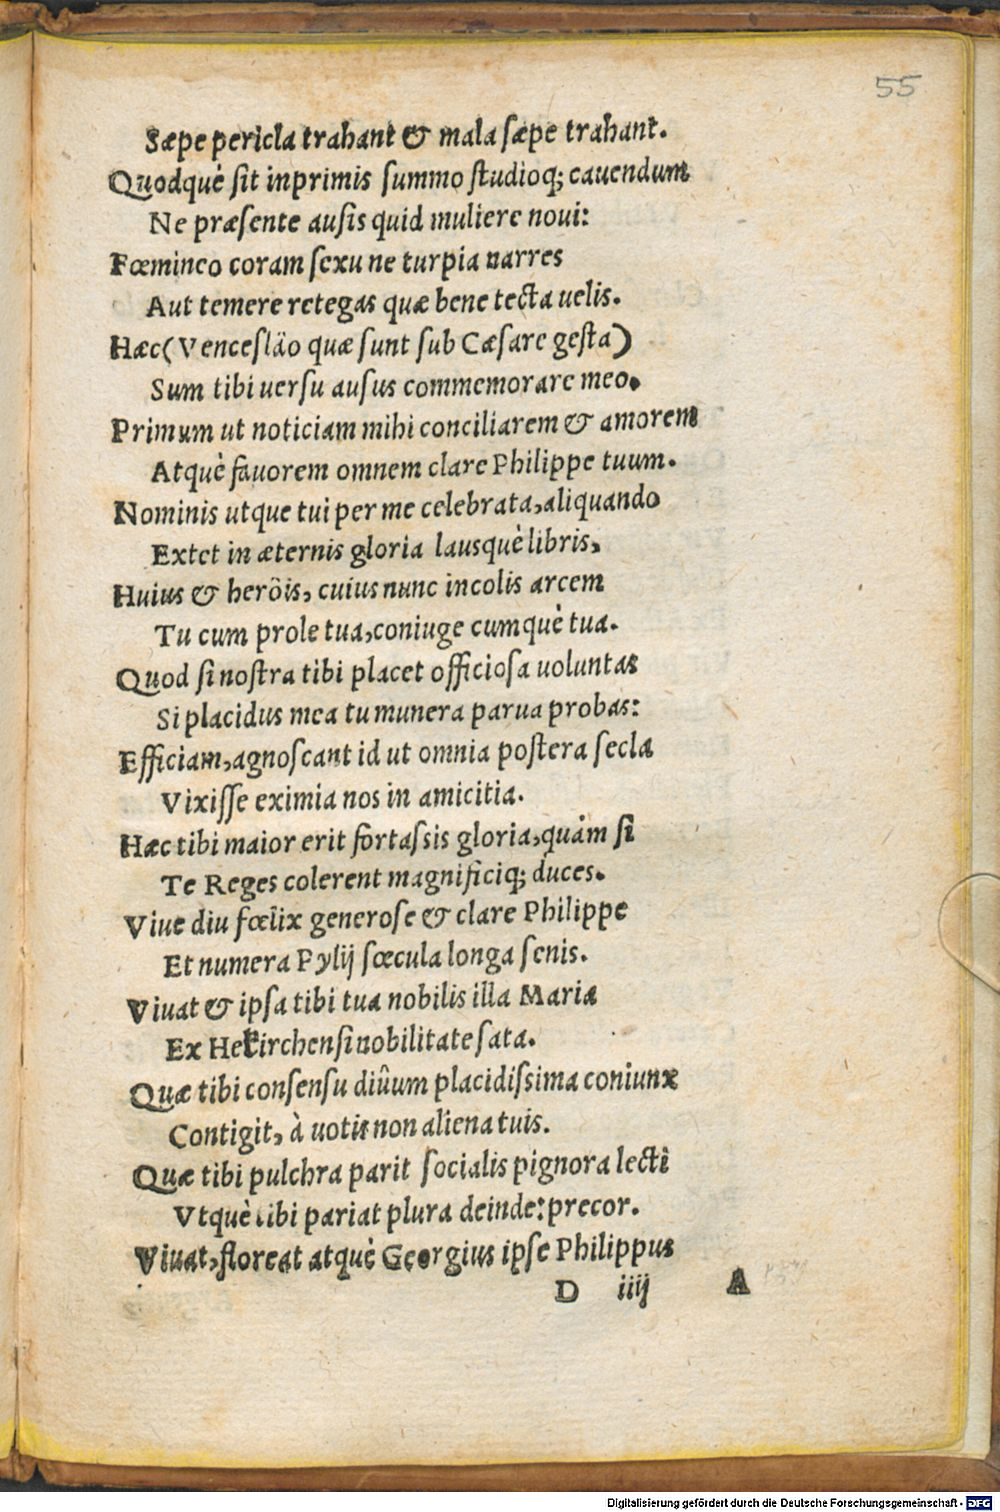 55
Sæpe pericla trahant & mala sæpe trahant.
Quodquè sit inprimis summo studioq; cauendum
Ne præsente ausis quid muliere noui:
Fœmineo coram sexu ne turpia narres
Aut temere retegas quæ bene tecta uelis.
Hæc (Vencesläo quæ sunt sub Cæsare gesta)
Sum tibi uersu ausus commemorare meo.
Primum ut noticiam mihi conciliarem & amorem
Atquè fauorem omnem clare Philippe tuum.
Nominis utque tui per me celebrata, aliquando
Extet in æternis gloria lausquè libris,
Huius & heröis, cuius nunc incolis arcem
Tu cum prole tua, coniuge cumquè tua.
Quod si nostra tibi placet officiosa uoluntas
Si placidus mea tu munera parua probas:
Efficiam, agnoscant id ut omnia postera secla
Vixisse eximia nos in amicitia.
Hæc tibi maior erit fortassis gloria, quàm si
Te Reges colerent magnificiq; duces.
Viue diu fœlix generose & clare Philippe
Et numera Pylij sœcula longa senis.
Viuat & ipsa tibi tua nobilis illa Maria
Ex Hekirchensi nobilitate sata.
Quæ tibi consensu diûum placidissima coniunx
Contigit, à uotis non aliena tuis.
Quæ tibi pulchra parit socialis pignora lecti
Vtquè tibi pariat plura deinde: precor.
Viuat, floreat atquè Georgius ipse Philippus
D iiij A
Digitalisierung gefördert durch die Deutsche Forschungsgemeinschaft - DFG